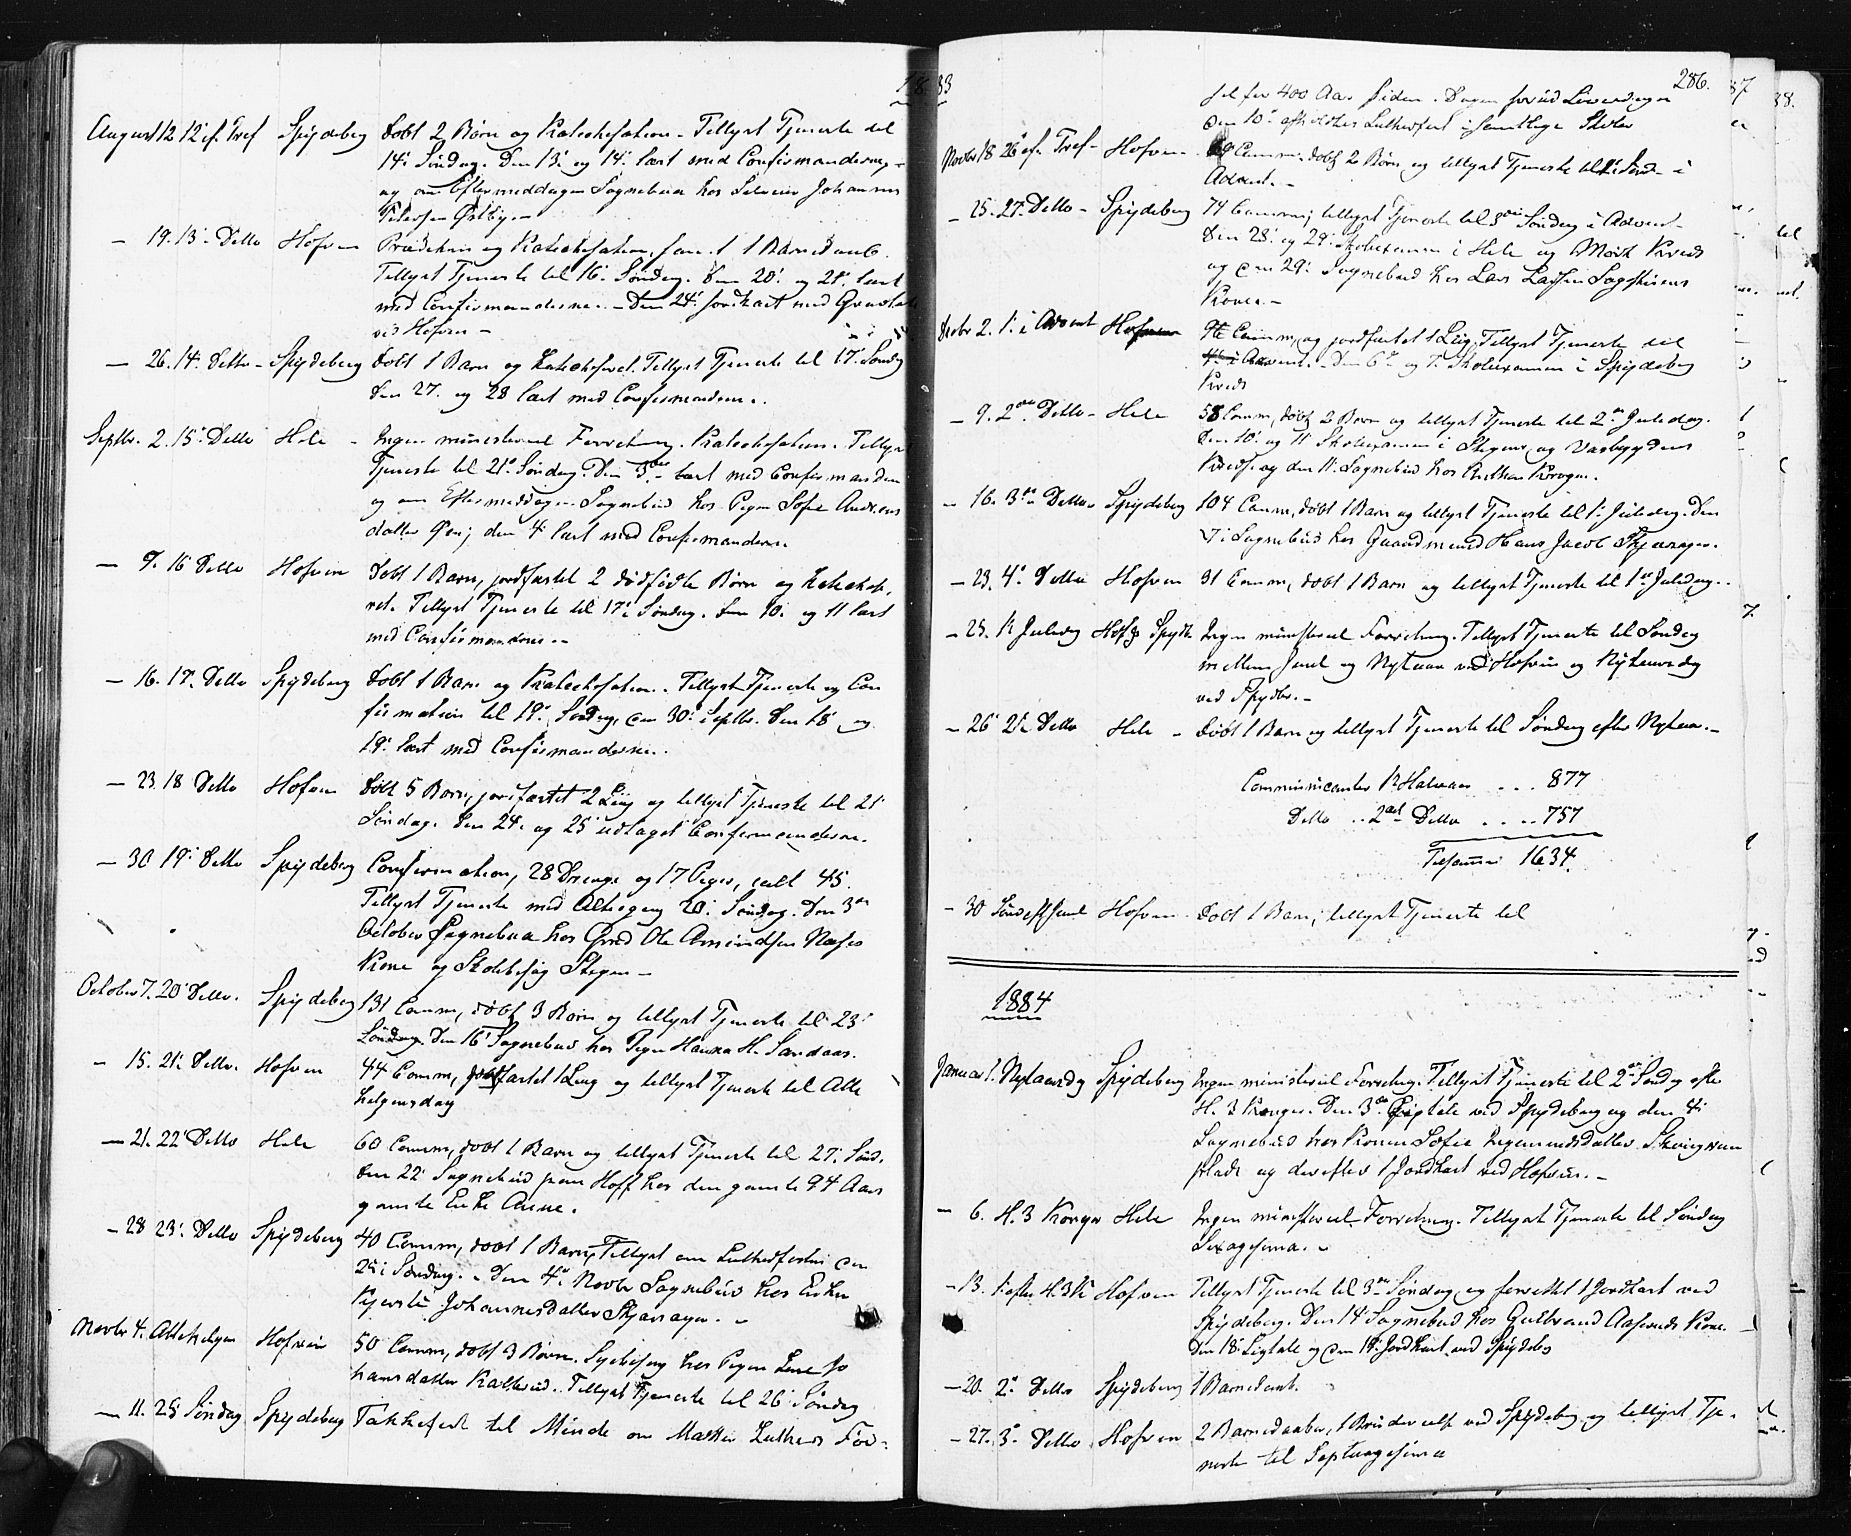 1883
August 12 12' ef. Tref Spydeberg Døbt 2 Børn og Katechesation. Tillyst Tjeneste til
14' Søndag. Den 13' og 14' læst med Confirmanderne,
og om Eftermiddagen Sognebud hos Johannes
Petersen Østby.
– 19. 13' Detto Hofvin Prædiken og Katechisation, samt 1 Barnedaab.
Tillyst Tjeneste til 16' Søndag. Den 20' og 21' læst
med Confirmanderne. – Den 24' Jordkast med
ved Hofvin –
– 26. 14' Detto – Spydeberg Døbt 1 Barn og katechiseret. Tillyst Tjeneste til 17' Søndag
Den 27. og 28 læst med Confirmanderne.
Septbr. 2. 15' Detto Heli – Ingen ministeriel Forretning. Katechisation. Tillyst
Tjeneste til 21' Søndag. Den 3die læst med Confirmanderne
og om Eftermiddagen Sognebud hos Pigen Sofie Andreas
datter den 4' læst med Confirmanderne.
– 9. 16 Detto Hofvin Døbt 1 Barn, jordfæstet 2 dødfødte Børn og katechise,
ret. Tillyst Tjeneste til 17' Søndag. Den 10. og 11 læst
med Confirmanderne. –
– 16. 17. Detto Spydeberg Døbt 1 Barn og Katechisation. Tillyst Tjeneste og Con
firmation til 19' Søndag, den 30' Septbr. Den 18' og
19' læst med Confirmanderne.
– 23. 18 Detto Hofvin Døbt 5 Børn, jordfæstet 2 Liig og tillyst Tjeneste til 21'
Søndag. Den 24. og 25' udtaget Confirmanderne.
– 30 19' Detto Spydeberg Confirmation, 28 Drenge og 17 Piger, ialt 45.
Tillyst Tjeneste med Altergang 20' Søndag. Den 3die
October Sognebud hos Ole Amundsen Næses
Kone og Skolebesøg Stegen –
October 7. 20' Detto. Spydeberg 131 Comm, døbt 3 Børn og tillyst Tjeneste til 23'
Søndag. Den 16' Sognebud hos Pigen H. Sandaas.
– 15. 21' Detto. Hofvin 44 Comm, jordfæstet 1 Liig og tillyst Tjeneste til Alle
helgensdag
– 21. 22' Detto Heli 60 Comm, døbt 1 Barn og tillyst Tjeneste til 27' Sønd.
Den 22' Sognebud paa Hoff hos den gamle 94 Aars
gamle Enke Anne.
– 28 23' Detto Spydeberg 40 Comm, døbt 1 Barn, Tillyst om Lutherfesten den
25' Søndag. – Den 4' Novbr Sognebud hos Enken
Kjersti Johannesdatter
Novbr 4. Allehelgen Hofvin 50 Comm, døbt 3 Børn. Sygebesøg hos Pigen Lene Jo
hansdatter Tillyst Tjeneste til 26' Søndag
– 11. 25' Søndag Spydeberg Takkefest til Minde om Martin Luthers Fød-
286.
sel for 400 Aar siden. Dagen forud Løverdagen
den 10' afholdtes Lutherfest i samtlige Skoler
Novbr 18 26' ef. Tref – Hofvin Comm. døbt 2 Børn og tillyst Tjeneste til 1' Sønd i
Advent. –
– 25. 27' Detto – Spydeberg 74 Comm, tillyst Tjeneste til 3die Søndag i Advent –
Den 28' og 29' Skoleexamen i Heli og Mørk Kreds
og den 29' Sognebud hos Lars Larsen
Kone. –
Decbr 2. 1' i Advent Hofvin Comm, og jordfæstet 1 Liig, Tillyst Tjeneste til
4' i Advent. – Den 6' og 7' Skoleexamen i Spydeberg
Kreds
– 9. 2den Detto – Heli 58 Comm, døbt 2 Børn og tillyst Tjeneste til 2den Juledag.
Den 10' og 11' Skoleexamen i Stegen og Vasbygdens
Kreds, og den 11' Sognebud hos
– 16. 3die Detto. Spydeberg 104 Comm, døbt 1 Barn og tillyst Tjeneste til 1' Juledag. Den
17' Sognebud hos Gaardmand Hans Jacob
– 23. 4' Detto Hofvin 31 Comm, døbt 1 Barn og tillyst Tjeneste til 1ste Juledag. –
– 25. 1' Juledag Hofv og Spydb Ingen ministeriel Forretning. Tillyst Tjeneste til Søndag
mellem Juul og Nytaar ved Hofvin og Nytaarsdag
ved Spydbr. –
– 26 2' Detto Heli – Døbt 1 Barn og tillyst Tjeneste til Søndag efter Nytaar. –
Communicanter 1' Halvaar . . . 877
Detto . . 2det Detto . . . . 757
Tilsammen 1634.
– 30 Sønd eft Juul Hofvin Døbt 1 Barn, tillyst Tjeneste til
1884
Januar 1. Nytaarsdag Spydeberg Ingen ministeriel Forretning. Tillyst Tjeneste til 2den Søndag efter
H. 3 Konger. Den 3die Ligtale ved Spydeberg og den 4'
Sognebud hos Konen Sofie Ingemundsdatter
og derefter 1 Jordkast ved Hofvin. –
– 6. H. 3 Konger Heli Ingen ministeriel Forretning. Tillyst Tjeneste til Søndag
Sexagesima. –
– 13. 1' efter H. 3 K Hofvin Tillyst Tjeneste til 3die Søndag og forrettet 1 Jordkast ved
Spydeberg. Den 14' Sognebud hos Gulbrand Aaseruds Kone. –
Den 18' Ligtale og den 19' Jordkast ved Spydebg
– 20. 2' Detto Spydeberg 1 Barnedaab.
– 27. 3' Detto Hofvin 2 Barnedaaber, 1 Brudevielse ved Spydeberg og tillyst Tje-
neste til Septuagesima